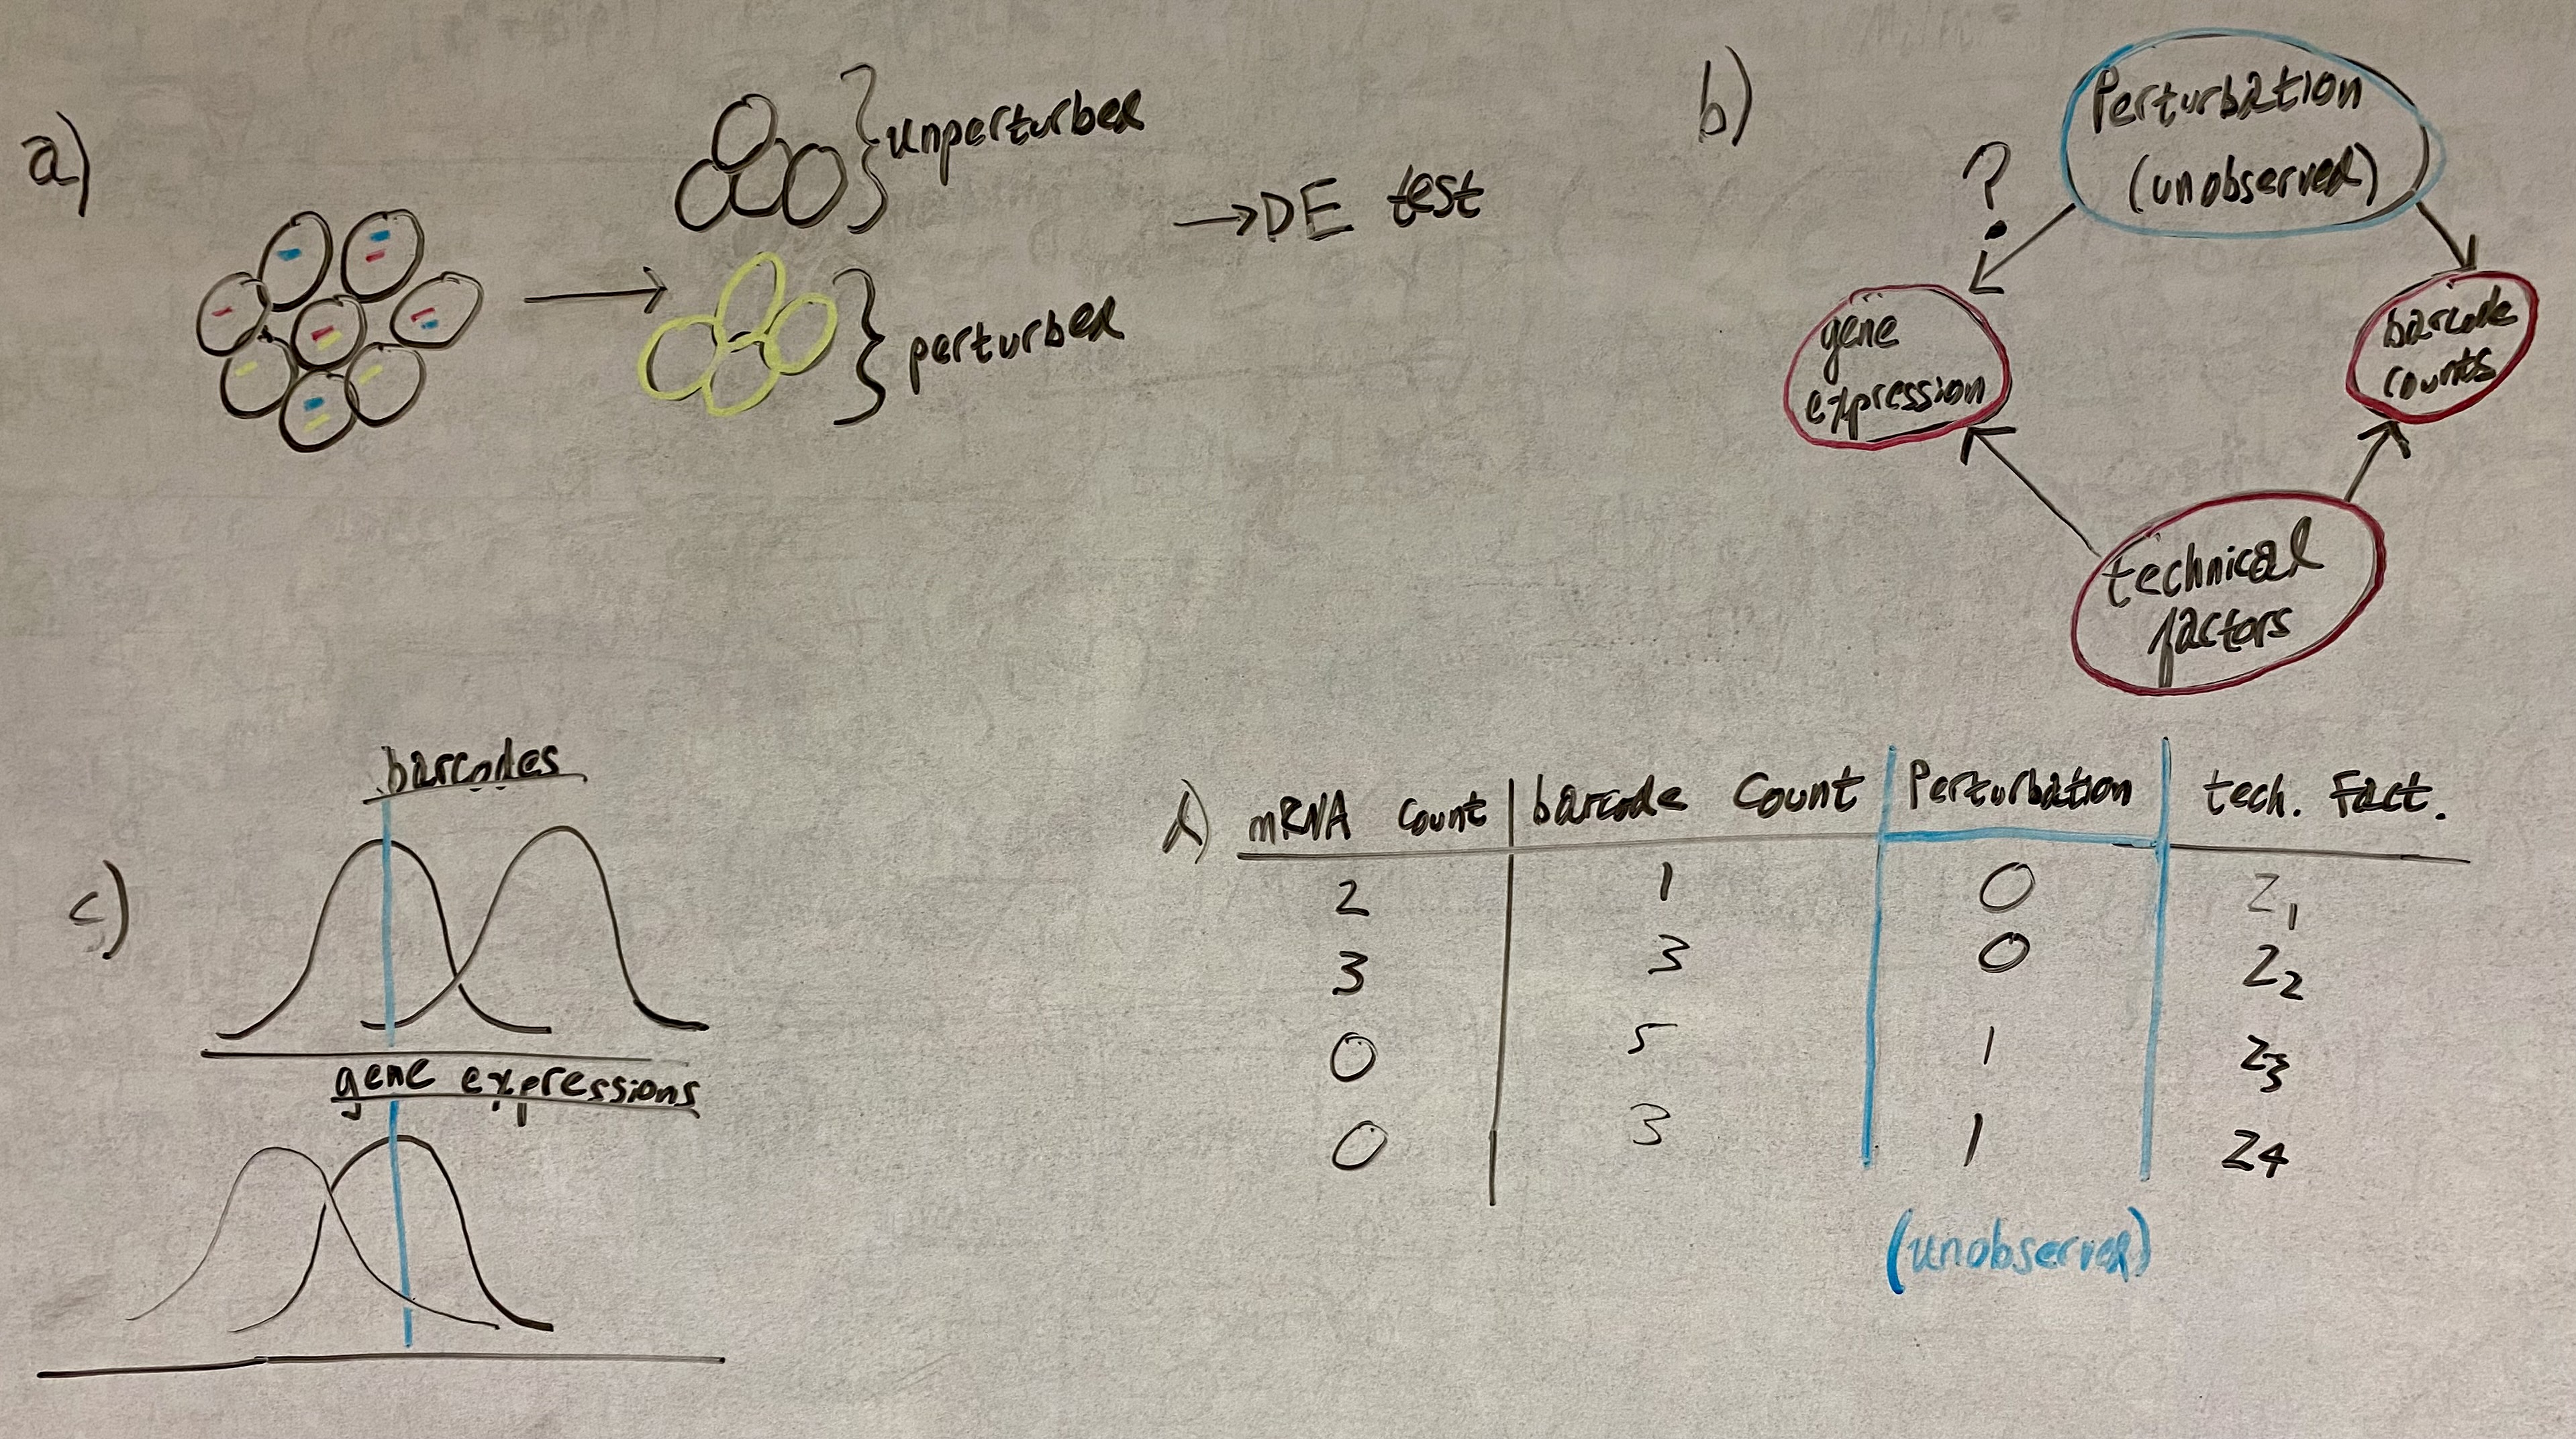 a)
unperturbed
perturbed
→DE test
b)
Perturbation
(unobserved)
?
gene
expression
barcode
counts
technical
factors
c)
barcodes
gene expressions
d) mRNA count barcode Count Perturbation tech. Fact.
2 1 0 Z1
3 3 0 Z2
0 5 1 Z3
0 3 1 Z4
(unobserved)